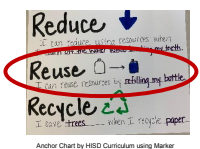 Reduce
I can reduce using resources when
I turn off the water while brushing my teeth.
Reuse
I can reuse resources by refilling my bottle.
Recycle
I save trees when I recycle paper
Anchor Chart by HISD Curriculum using Marker